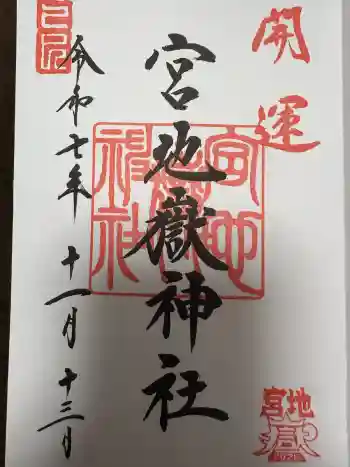 開運
宮地嶽神社
宮地嶽神社
令和七年 十一月 十三日
宮地
嶽